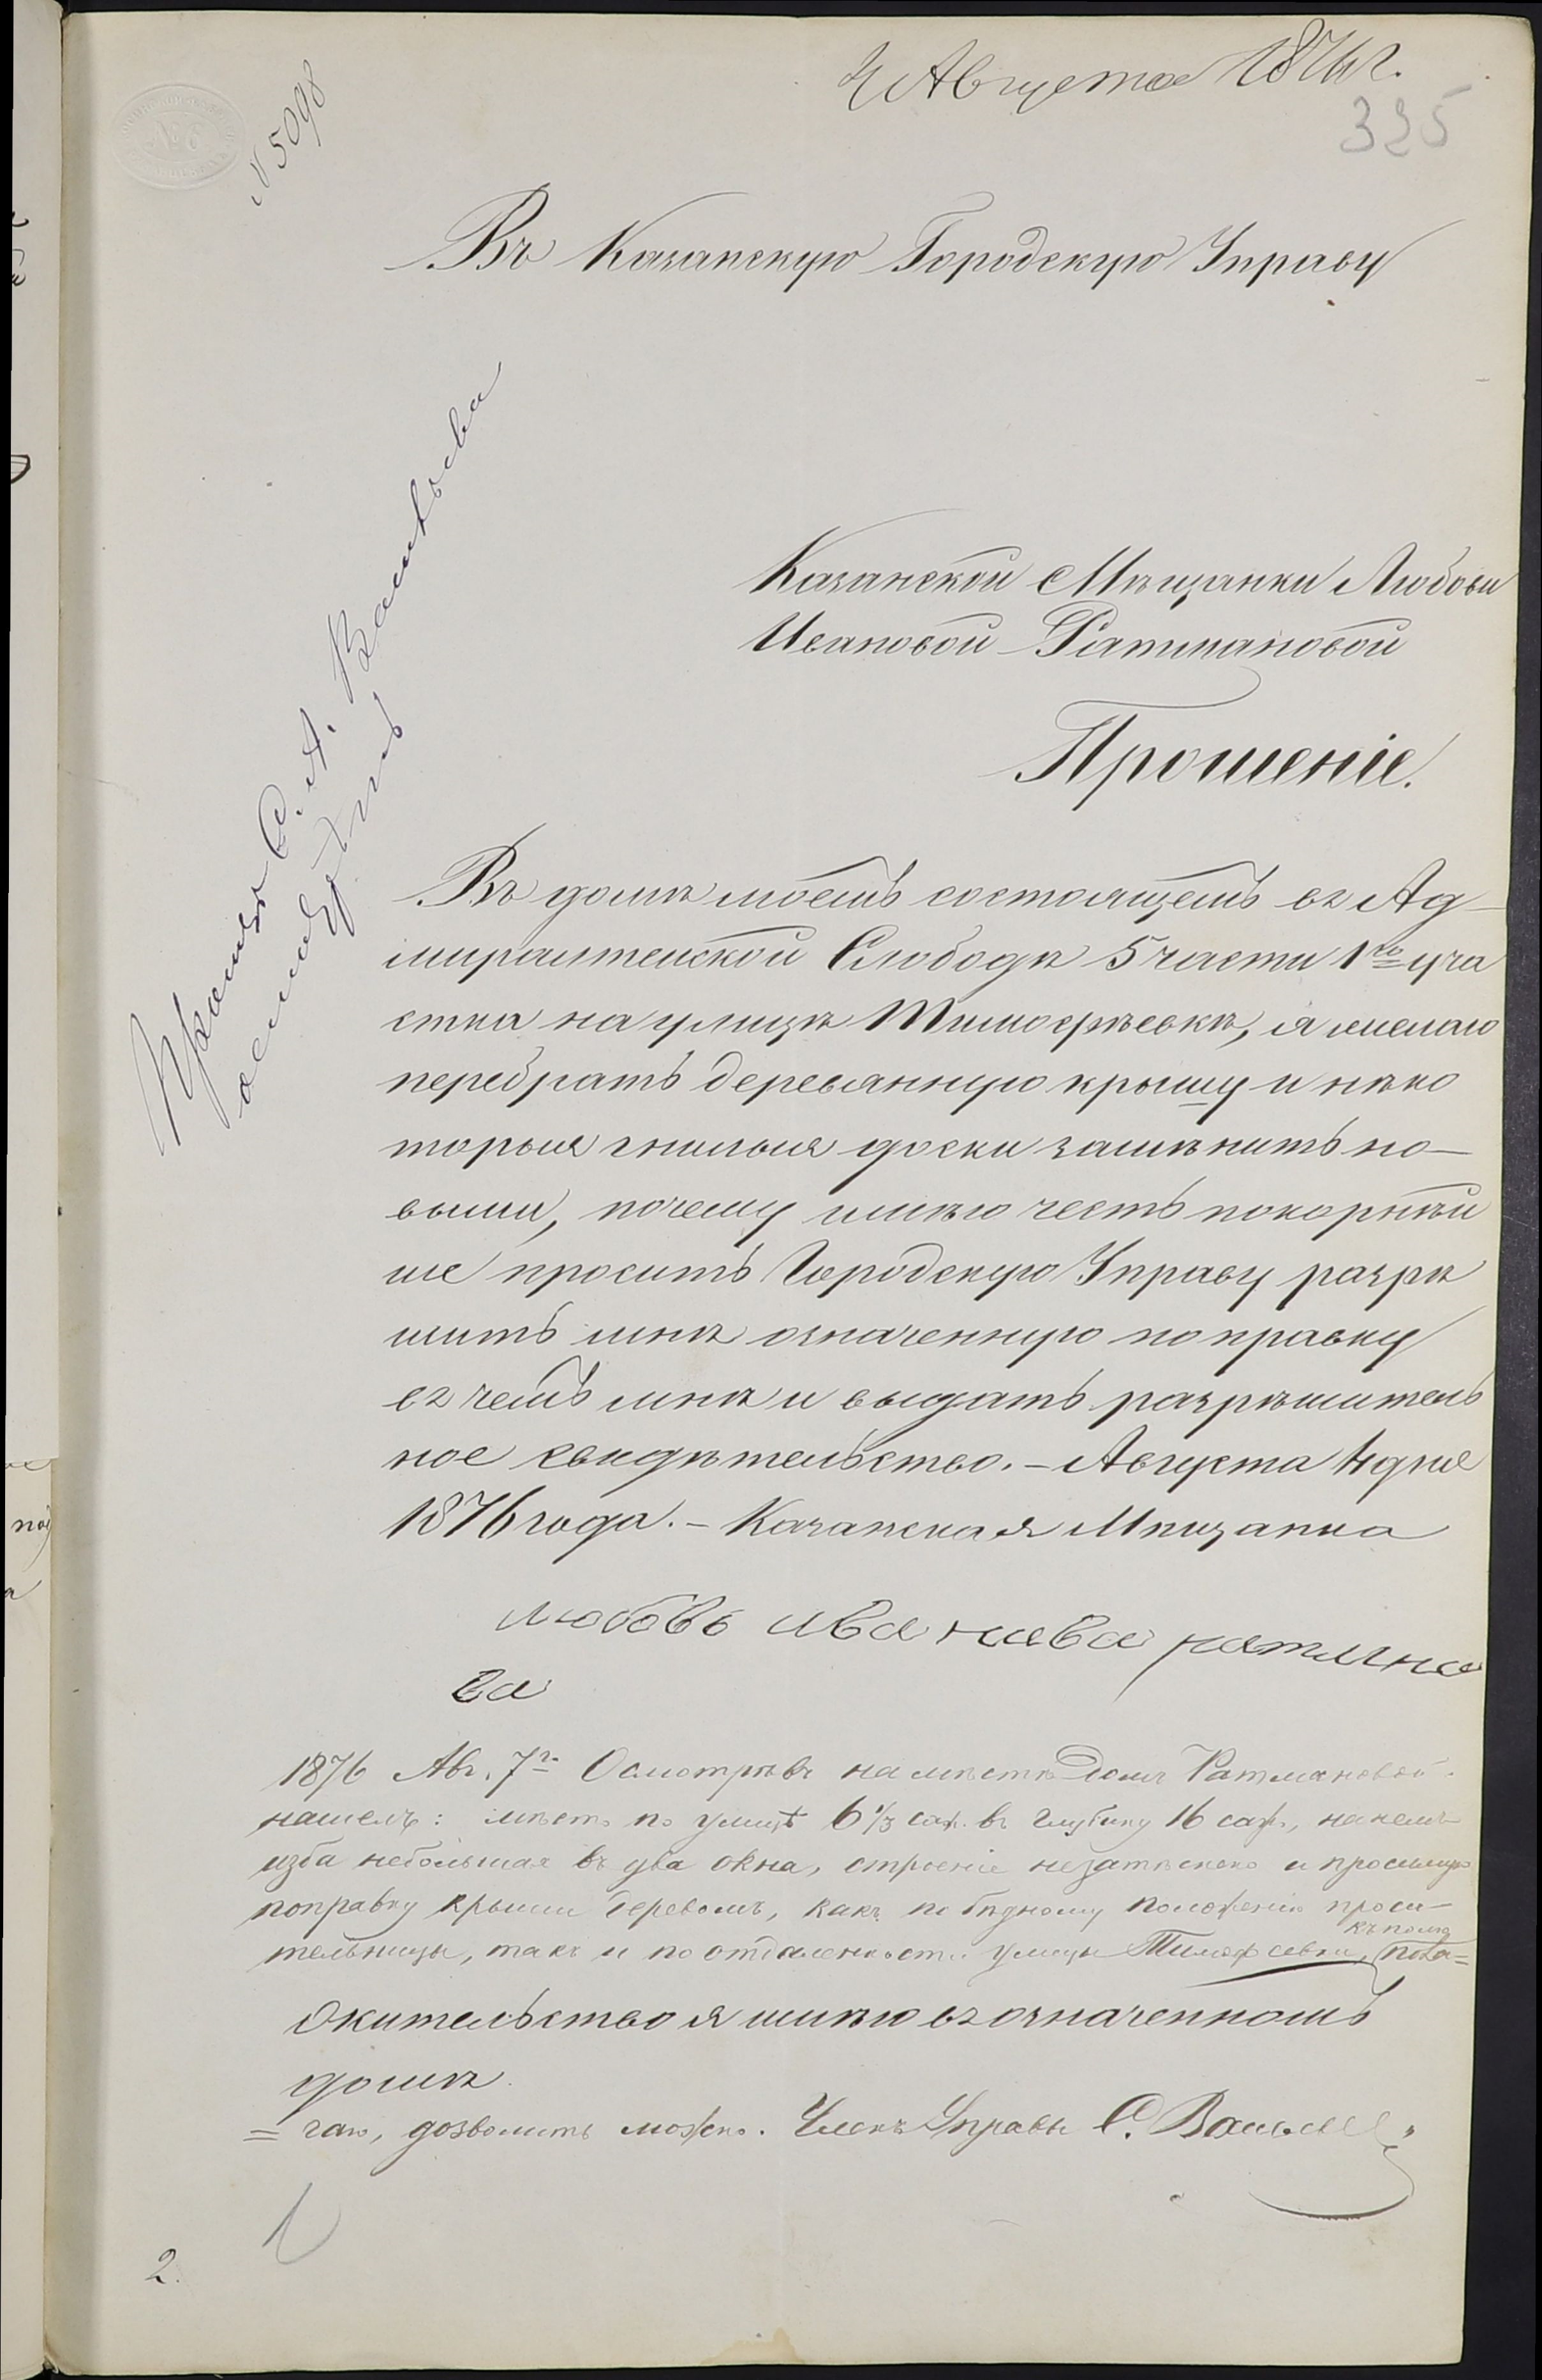 4 Августа 1876 г.
325
№ 5098
Въ Казанскую Городскую Управу
Казанской Мѣщанки Любови
Ивановой Ратмановой
Прошеніе.
Прошу С. А.
Въ домѣ моемъ состоящемъ въ Ад-
миралтейской Слободѣ 5 части 1го уча
стка на улицѣ Тимоѳѣевкѣ, я желаю
перебрать деревянную крышу и нѣко
торыя гнилыя доски замѣнить но-
выми, почему имѣю честь покорнѣй
ше просить Городскую Управу разрѣ
шить мнѣ означенную поправку
въ чемъ мнѣ и выдать разрѣшитель
ное свидѣтельство. - Августа 4 дня
1876 года. - Казанская Мѣщанка
любовь ивановa ратмно
ва
1876 Авг. 7го Осмотрѣвъ на мѣстѣ домъ Ратмановой
нашелъ: мѣсто по улицѣ 6 1/3 саж. въ глубину 16 саж., на немъ
изба небольшая въ два окна, строеніе и просимую
поправку крыши деревомъ, какъ по бѣдному положенію проси-
тельницы, такъ и по отдаленности улицы Тимофеевки, пола=
Жительство я имѣю въ означенномъ
домѣ.
= гаю, дозволить можно. Членъ Управы С.
1
2.